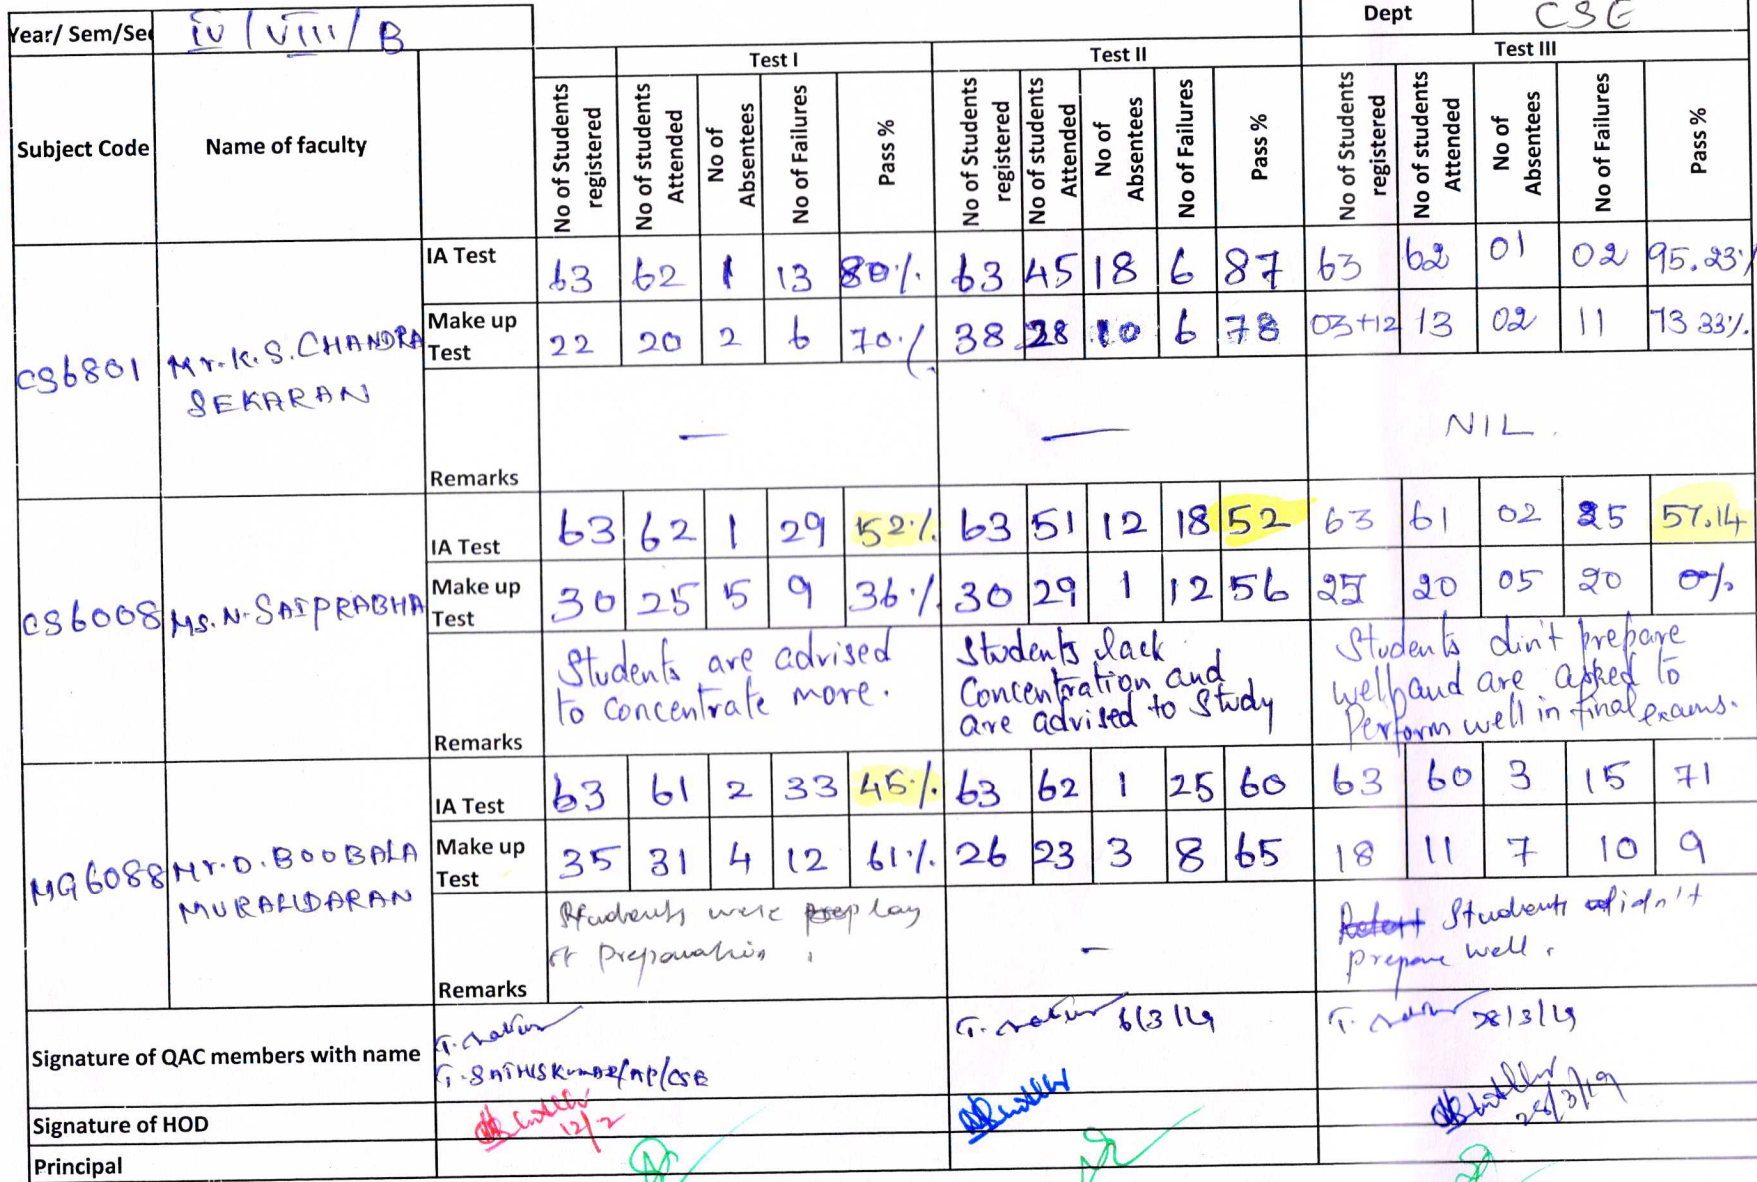 Dept CSE
Year/ Sem/Sec IV / VIII / B
Test I Test II Test III
Subject Code Name of faculty No of Students registered No of students Attended No of Absentees No of Failures Pass % No of Students registered No of students Attended No of Absentees No of Failures Pass % No of Students registered No of students Attended No of Absentees No of Failures Pass %
CS6801 Mr.K.S.CHANDRA SEKARAN
IA Test 63 62 1 13 80% 63 45 18 6 87 63 62 01 02 95.23%
Make up Test 22 20 2 6 70% 38 28 10 6 78 03+12 13 02 11 73 33%
Remarks — — NIL.
CS6008 Ms.N.SAIPRABHA
IA Test 63 62 1 29 52% 63 51 12 18 52 63 61 02 25 57.14
Make up Test 30 25 5 9 36% 30 29 1 12 56 25 20 05 20 0%
Remarks
Students are advised
to concentrate more.
Students lack
Concentration and
are advised to study
Students din't prepare
well and are asked to
Perform well in final exams.
MG6088 Mr.D.BOOBALA MURALIDARAN
IA Test 63 61 2 33 45% 63 62 1 25 60 63 60 3 15 71
Make up Test 35 31 4 12 61% 26 23 3 8 65 18 11 7 10 9
Remarks
Students were lay
of Preparation .
—
Students didn't
prepare well.
Signature of QAC members with name
G.SATHISKUMAR/AP/CSE
6/3/19
28/3/19
Signature of HOD
12/2
28/3/19
Principal